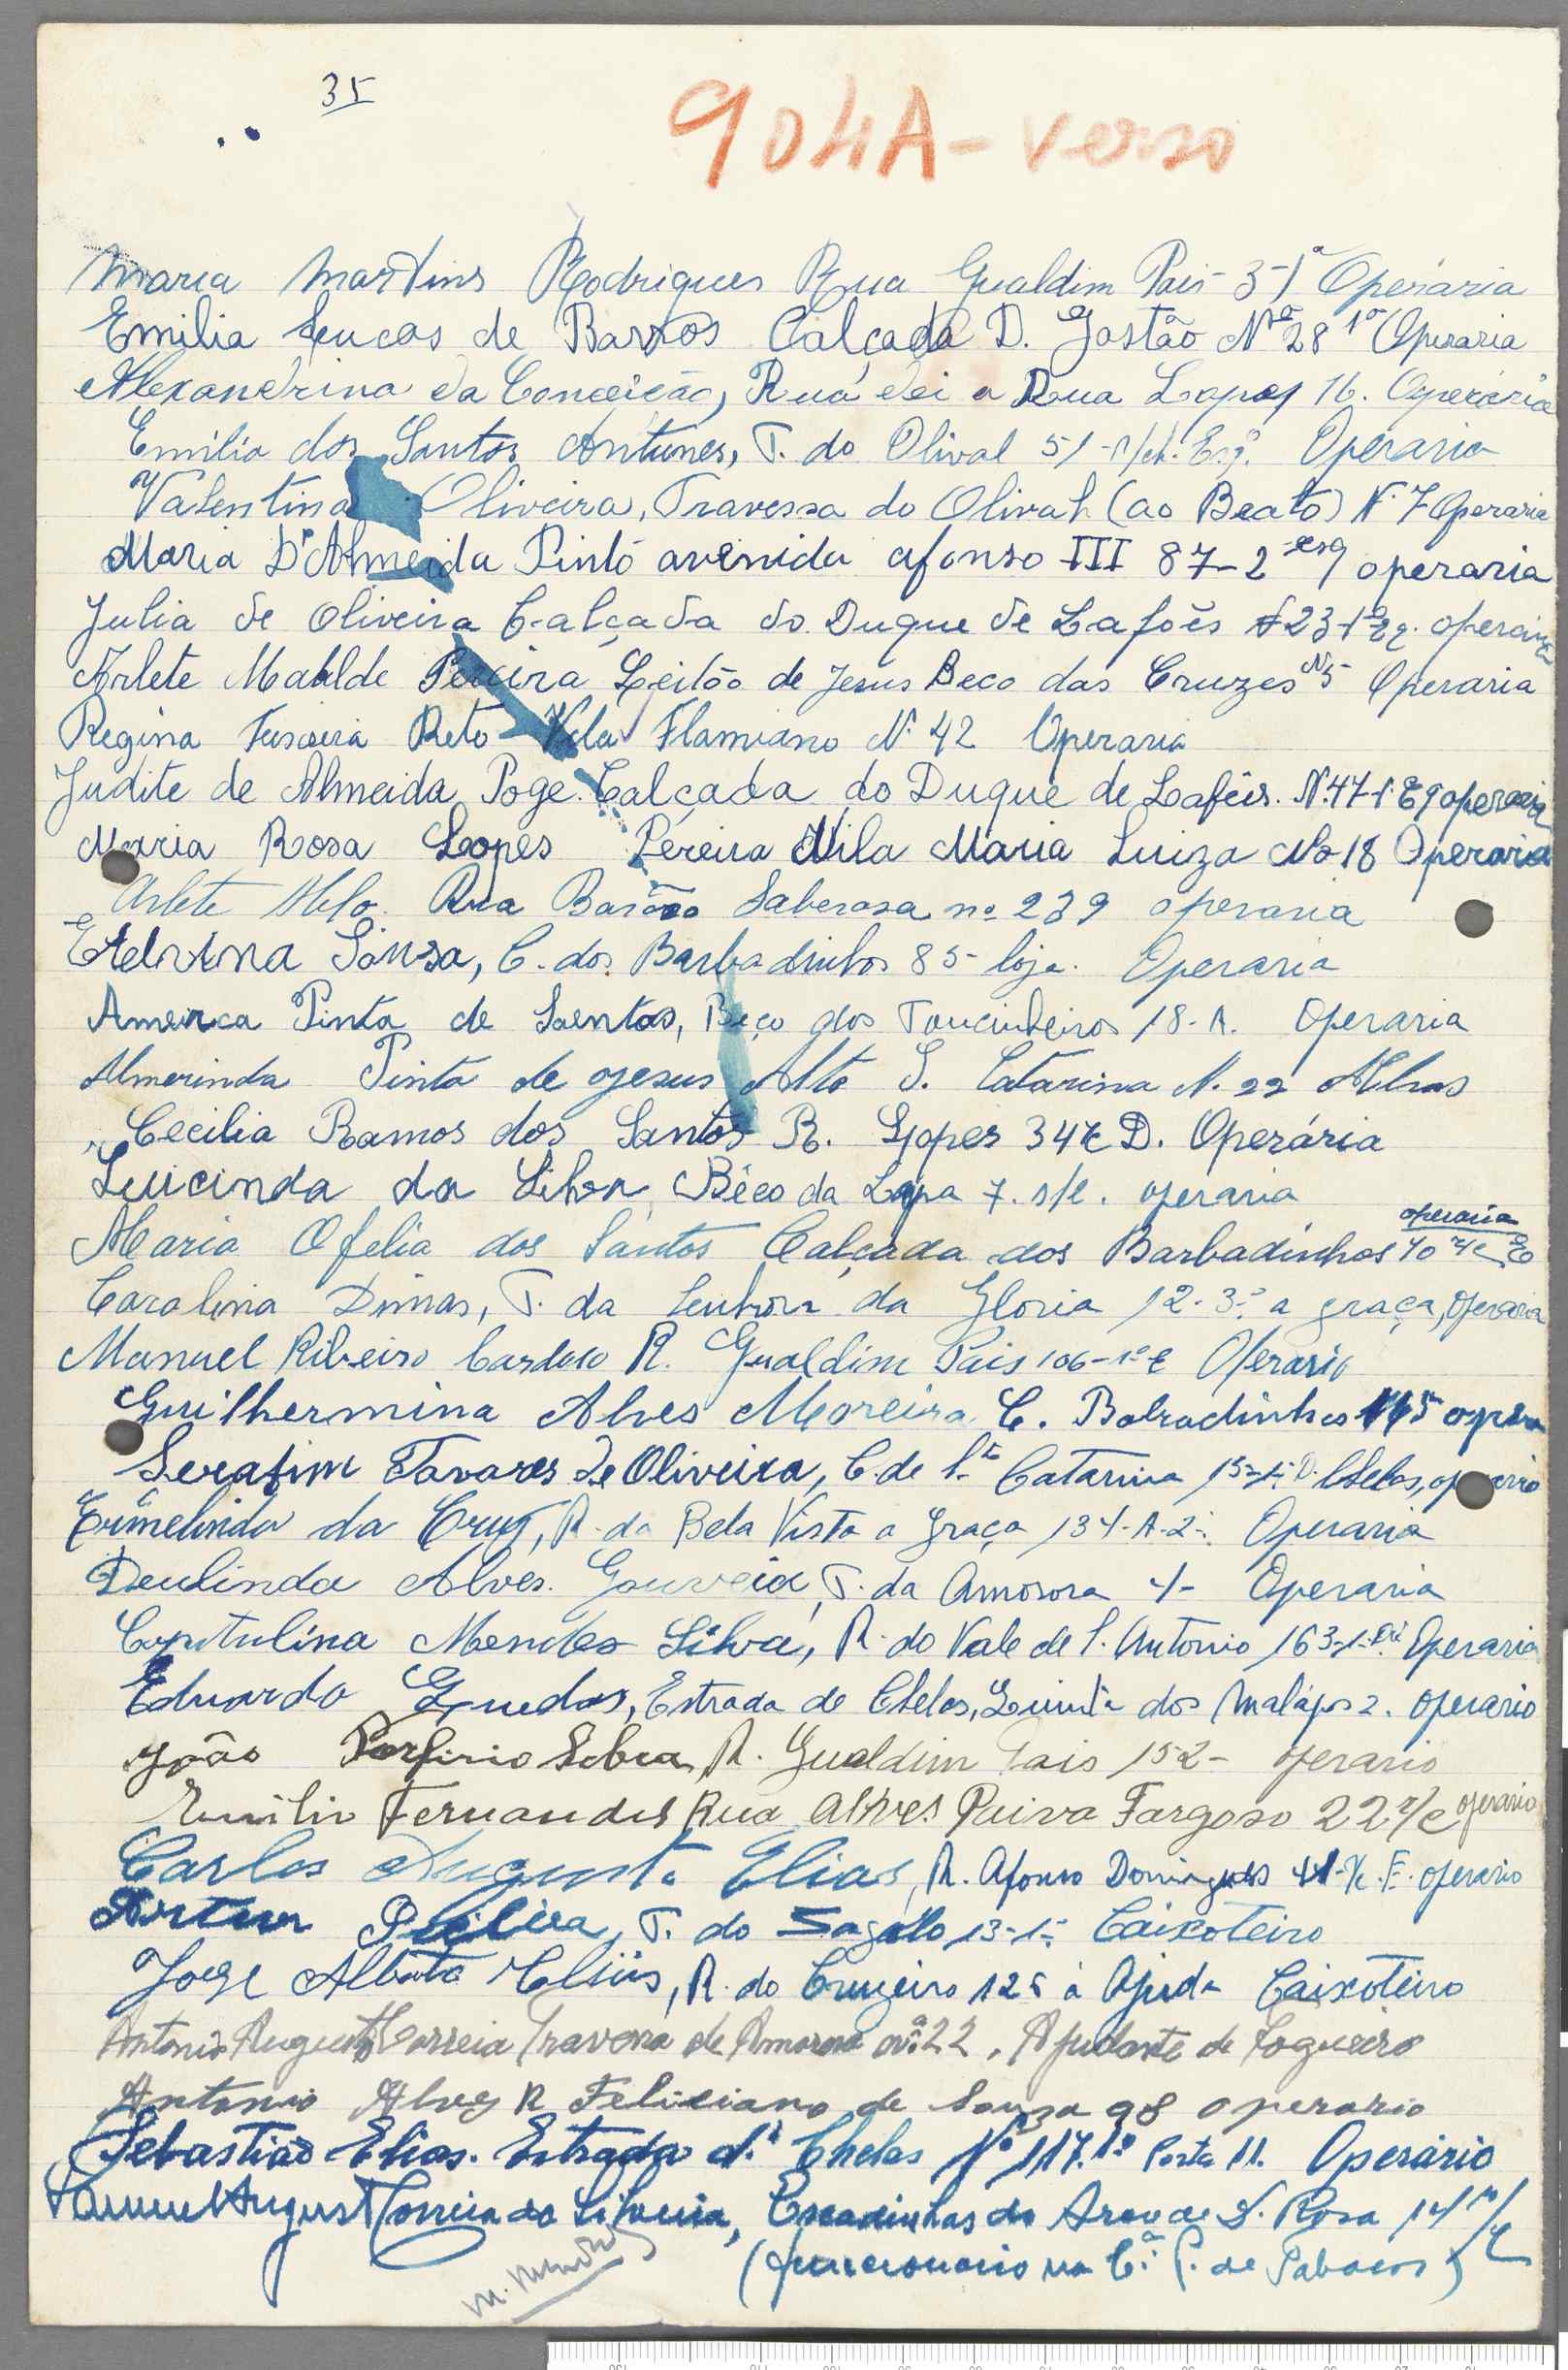 35
904A - verso
Maria Martins Rodrigues Rua Gualdim Pais - 3-1º Operária
Emilia Lucas de Barros Calçada D. Gastão Nº 28 1º Operaria
Alexandrina da Conceição, Rua Lopes 16. Operária
Emilia dos Santos Antunes, T. do Olival 51-r/ch. Esqº. Operaria
Valentina Oliveira, Travessa do Olival (ao Beato) N. 7 Operaria
Maria D'Almeida Pinto avenida afonso III 87-2 esq operaria
Julia de Oliveira Calçada do Duque de Lafoẽs 23-1º Eq. operaria
Arlete Matilde Pereira Leitão de Jesus Beco das Cruzes Nº 5 Operaria
Regina Reto Vila Flamiano N. 42 Operaria
Judite de Almeida Poge. Calçada do Duque de Lafões. N. 47-1. Eq operaria
Maria Rosa Lopes Pereira Vila Maria Luiza No 18 Operaria
Arlete Melo Rua Barão Saberosa nº 239 operaria
Etelvina Sousa, C. dos Barbadinhos 85- loja. Operaria
America Pinta de Santos, Beço dos Toucinheiros 18-A. Operaria
Almerinda Pinta de Jesus Alto S. Catarina N. 22
Cecilia Ramos dos Santos R. Lopes 34 D. Operária
Lucinda da Silva Bêco da Lapa 7. r/c. operaria
Maria Ofelia dos Santos Calçada dos Barbadinhos 40 r/c E operaria
Carolina Dimas, T. da Senhora da Gloria 12-3º a graça, operaria
Manuel Ribeiro Cardoso R. Gualdim Pais 106-1º E Operario
Guilhermina Alves Moreira C. Balradinhos 115 opera
Serafim Tavares de Oliveira, C. de Stª Catarina 15-1º D. Chelas, operario
Ermelinda da Cruz, R. da Bela Vista a Graça 134-A-2º. Operaria
Deulinda Alves Gouveia, T. da Amorosa 4- Operaria
Capitulina Mendes Silva, R. do Vale de S. Antonio 163-1º. Dtº Operaria
Eduardo Guedes, Estrada de Chelas, Quinta dos Malápos 2. Operario
João Porfirio R. Gualdim Pais 152- operario
Emilio Fernandes Rua Alves Paiva Fargoso 22 r/c operario
Carlos Augusto Elias, R. Afonso Domingues 41-r/c. E. operario
Artur T. do 13-1º Caixoteiro
Jorge Alberto R. do Cruzeiro 125 á Ajuda Caixoteiro
Antonio Augusto Correia Travessa de Amorosa nº 22. Ajudante de Fogueiro
Antonio Alves R Feliciano de Sousa 98 operario
Sebastião Elias. Estrada d. Chelas Nº 117. 1º Porta 11. Operário
Samuel Augusto Correia da Silveira, Escadinhas do Arco de D. Rosa 14 r/c
(funcionario na Cª. P. de Tabacos)